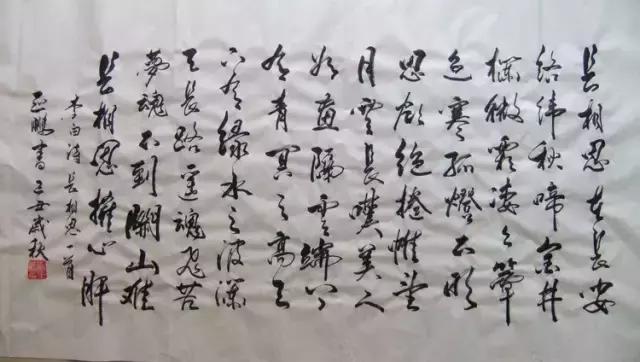 長相思在長安
絡緯秋啼金井
欄微霜凄々簟
色寒孤燈不明
思欲絕捲帷望
月空長嘆美人
如花隔雲端上
有青冥之高天
下有綠水之波瀾
天長路遠魂飛苦
夢魂不到關山難
長相思摧心肝
李白詩長相思一首
鵬書丑歲秋